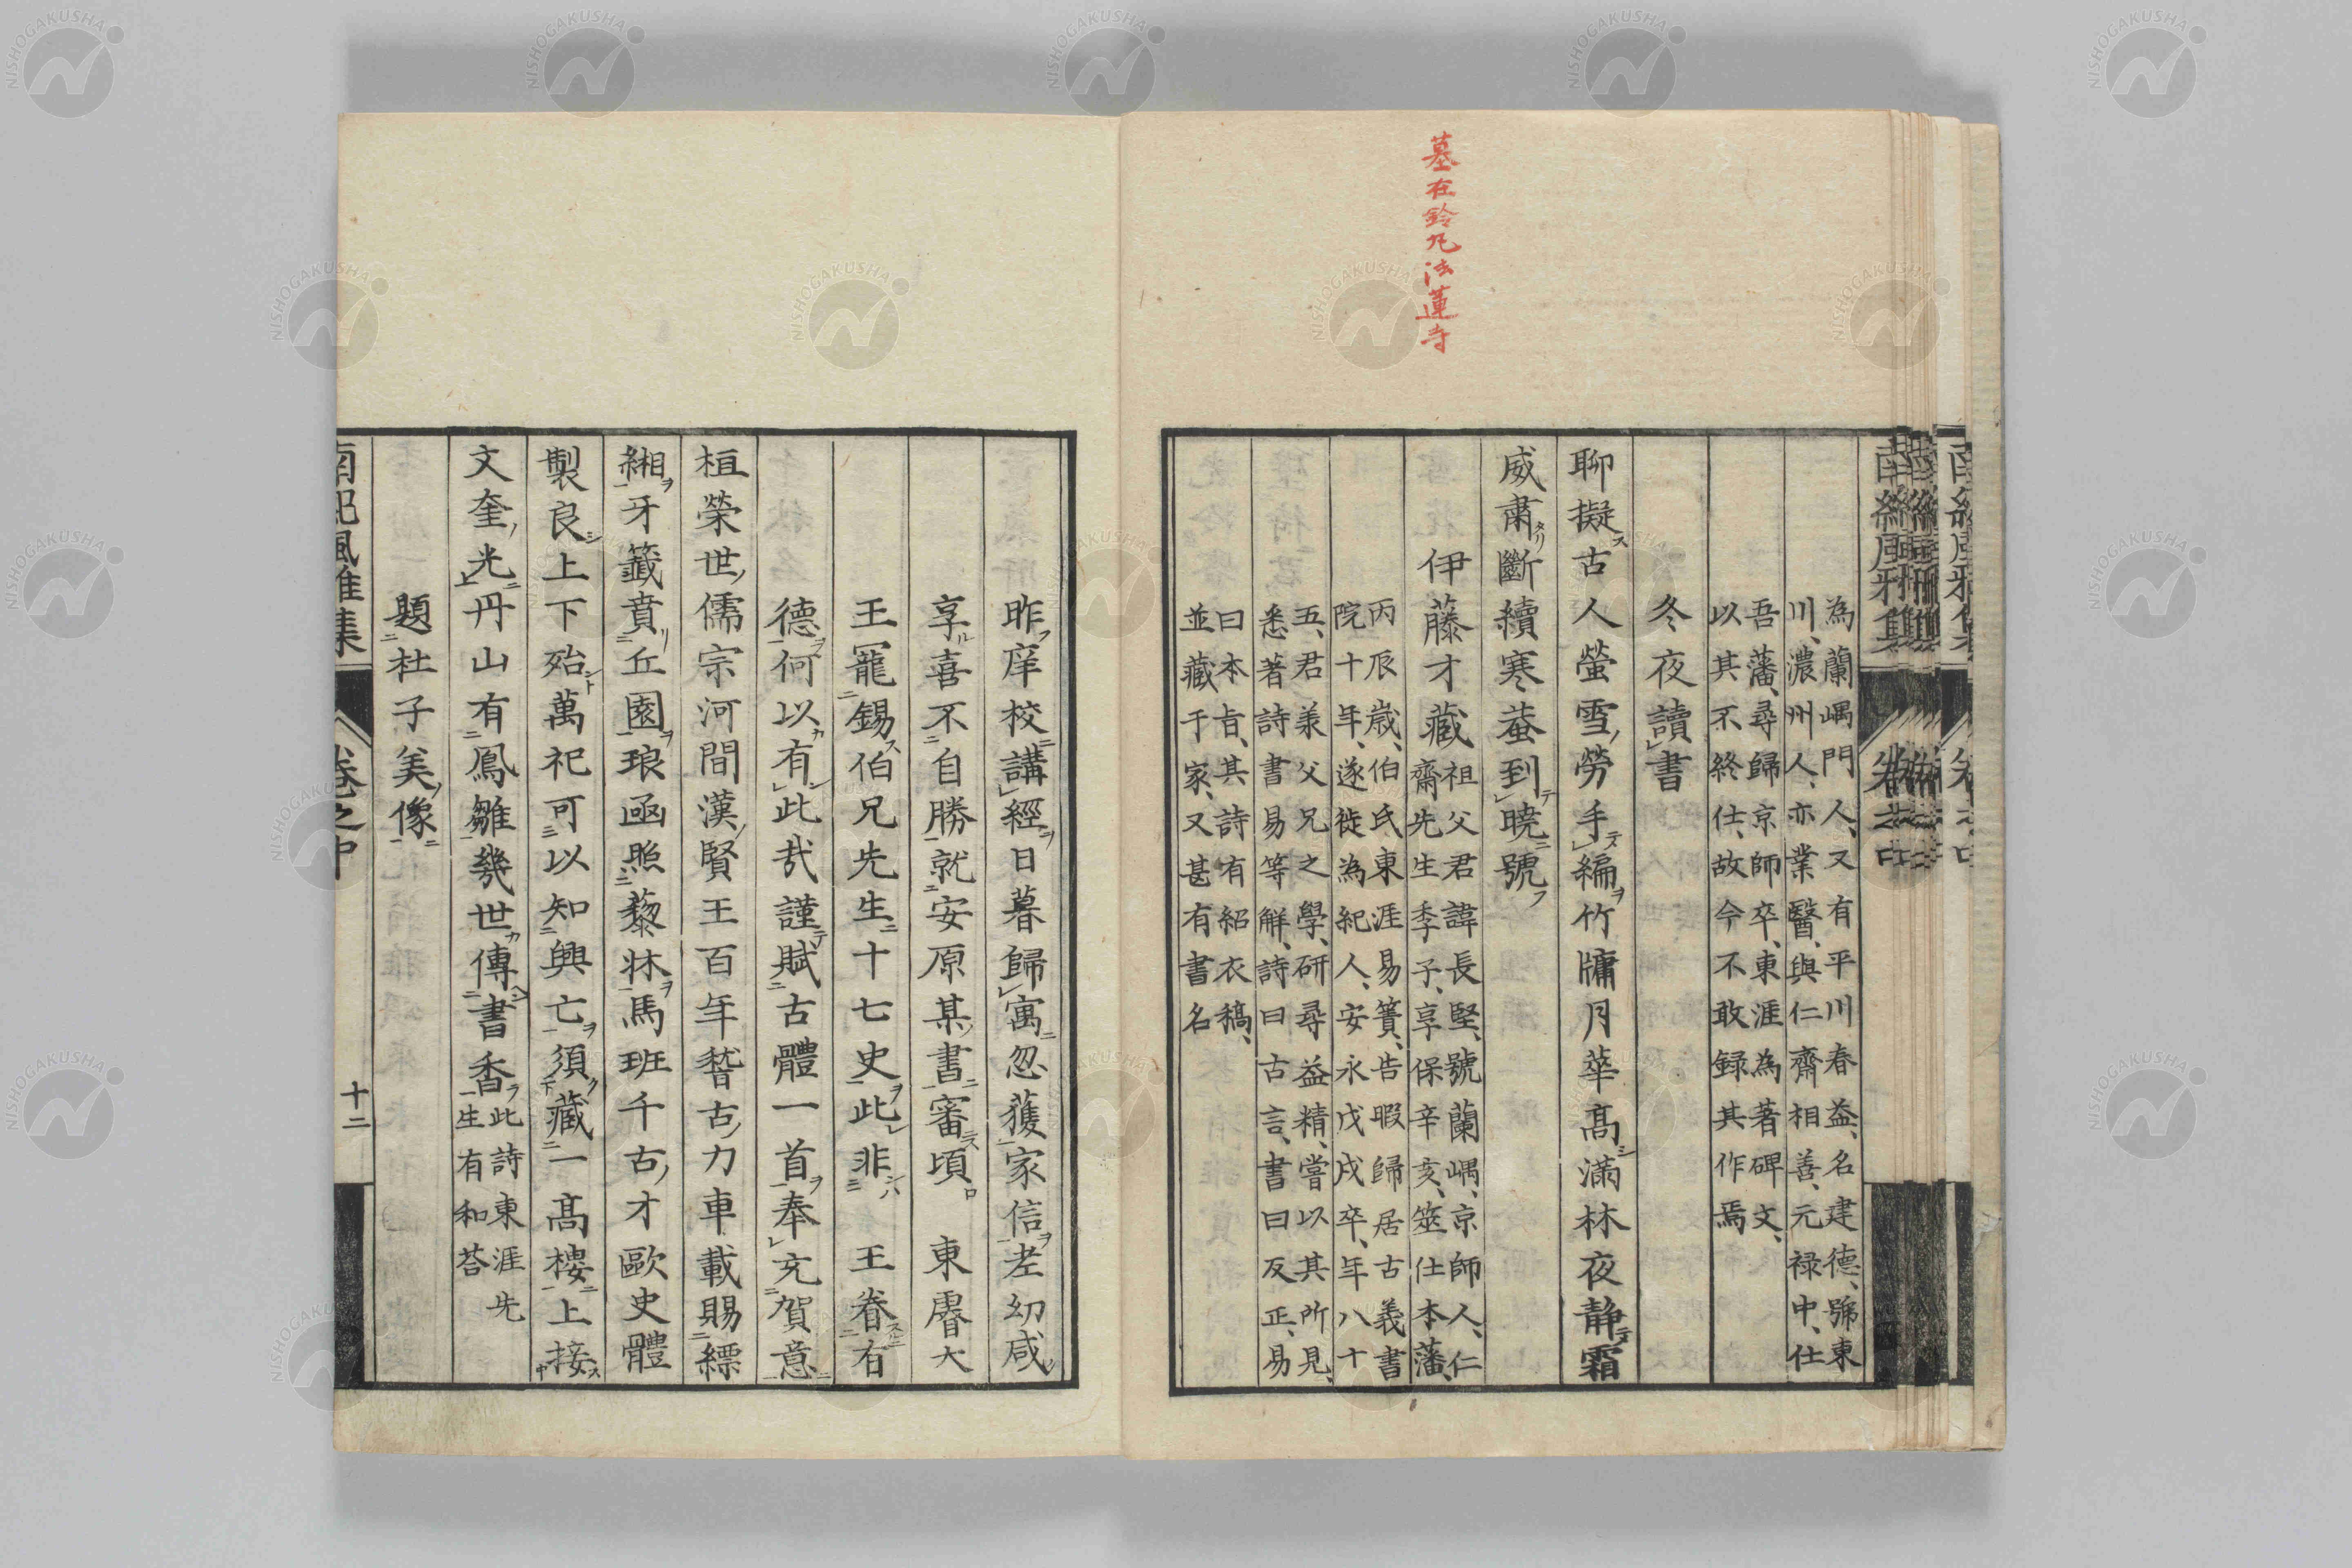 墓在鈴丸法蓮寺
為蘭嵎門人、又有平川春益、名建德、號東
川、濃州人、亦業醫、與仁齋相善、元禄中、仕
吾藩、尋歸京師卒、東涯為著碑文、
以其不終仕、故今不敢録其作焉
冬夜讀書
聊擬古人螢雪勞手編竹牗月華高滿林夜静霜
威肅斷續寒蛬到曉號
伊藤才藏
祖父君諱長堅、號蘭嵎、京師人、仁
齋先生季子、享保辛亥、筮仕本藩、
丙辰歳、伯氏東涯易簀、告暇歸居古義書
院十年、遂徙為紀人、安永戊戌卒、年八十
五、君兼父兄之學、研尋益精、嘗以其所見、
悉著詩書易等解、詩曰古言、書曰反正、易
曰本旨、其詩有紹衣稿、
並藏于家、又甚有書名
昨庠校講經日暮歸寓忽獲家信老幼咸
享喜不自勝就安原某書審頃 東睿大
王寵錫伯兄先生十七史此非 王眷有
德何以有此哉謹賦古體一首奉充賀意
桓榮世儒宗河間漢賢王百年嵆古力車載賜縹
緗牙籤賁丘園琅函照藜牀馬班千古才歐史體
製良上下殆萬祀可以知興亡須藏一高樓上接
文奎光丹山有鳳雛幾世傳書香
此詩東涯先
生有和荅
題杜子美像
南紀風雅集
卷之中
十二